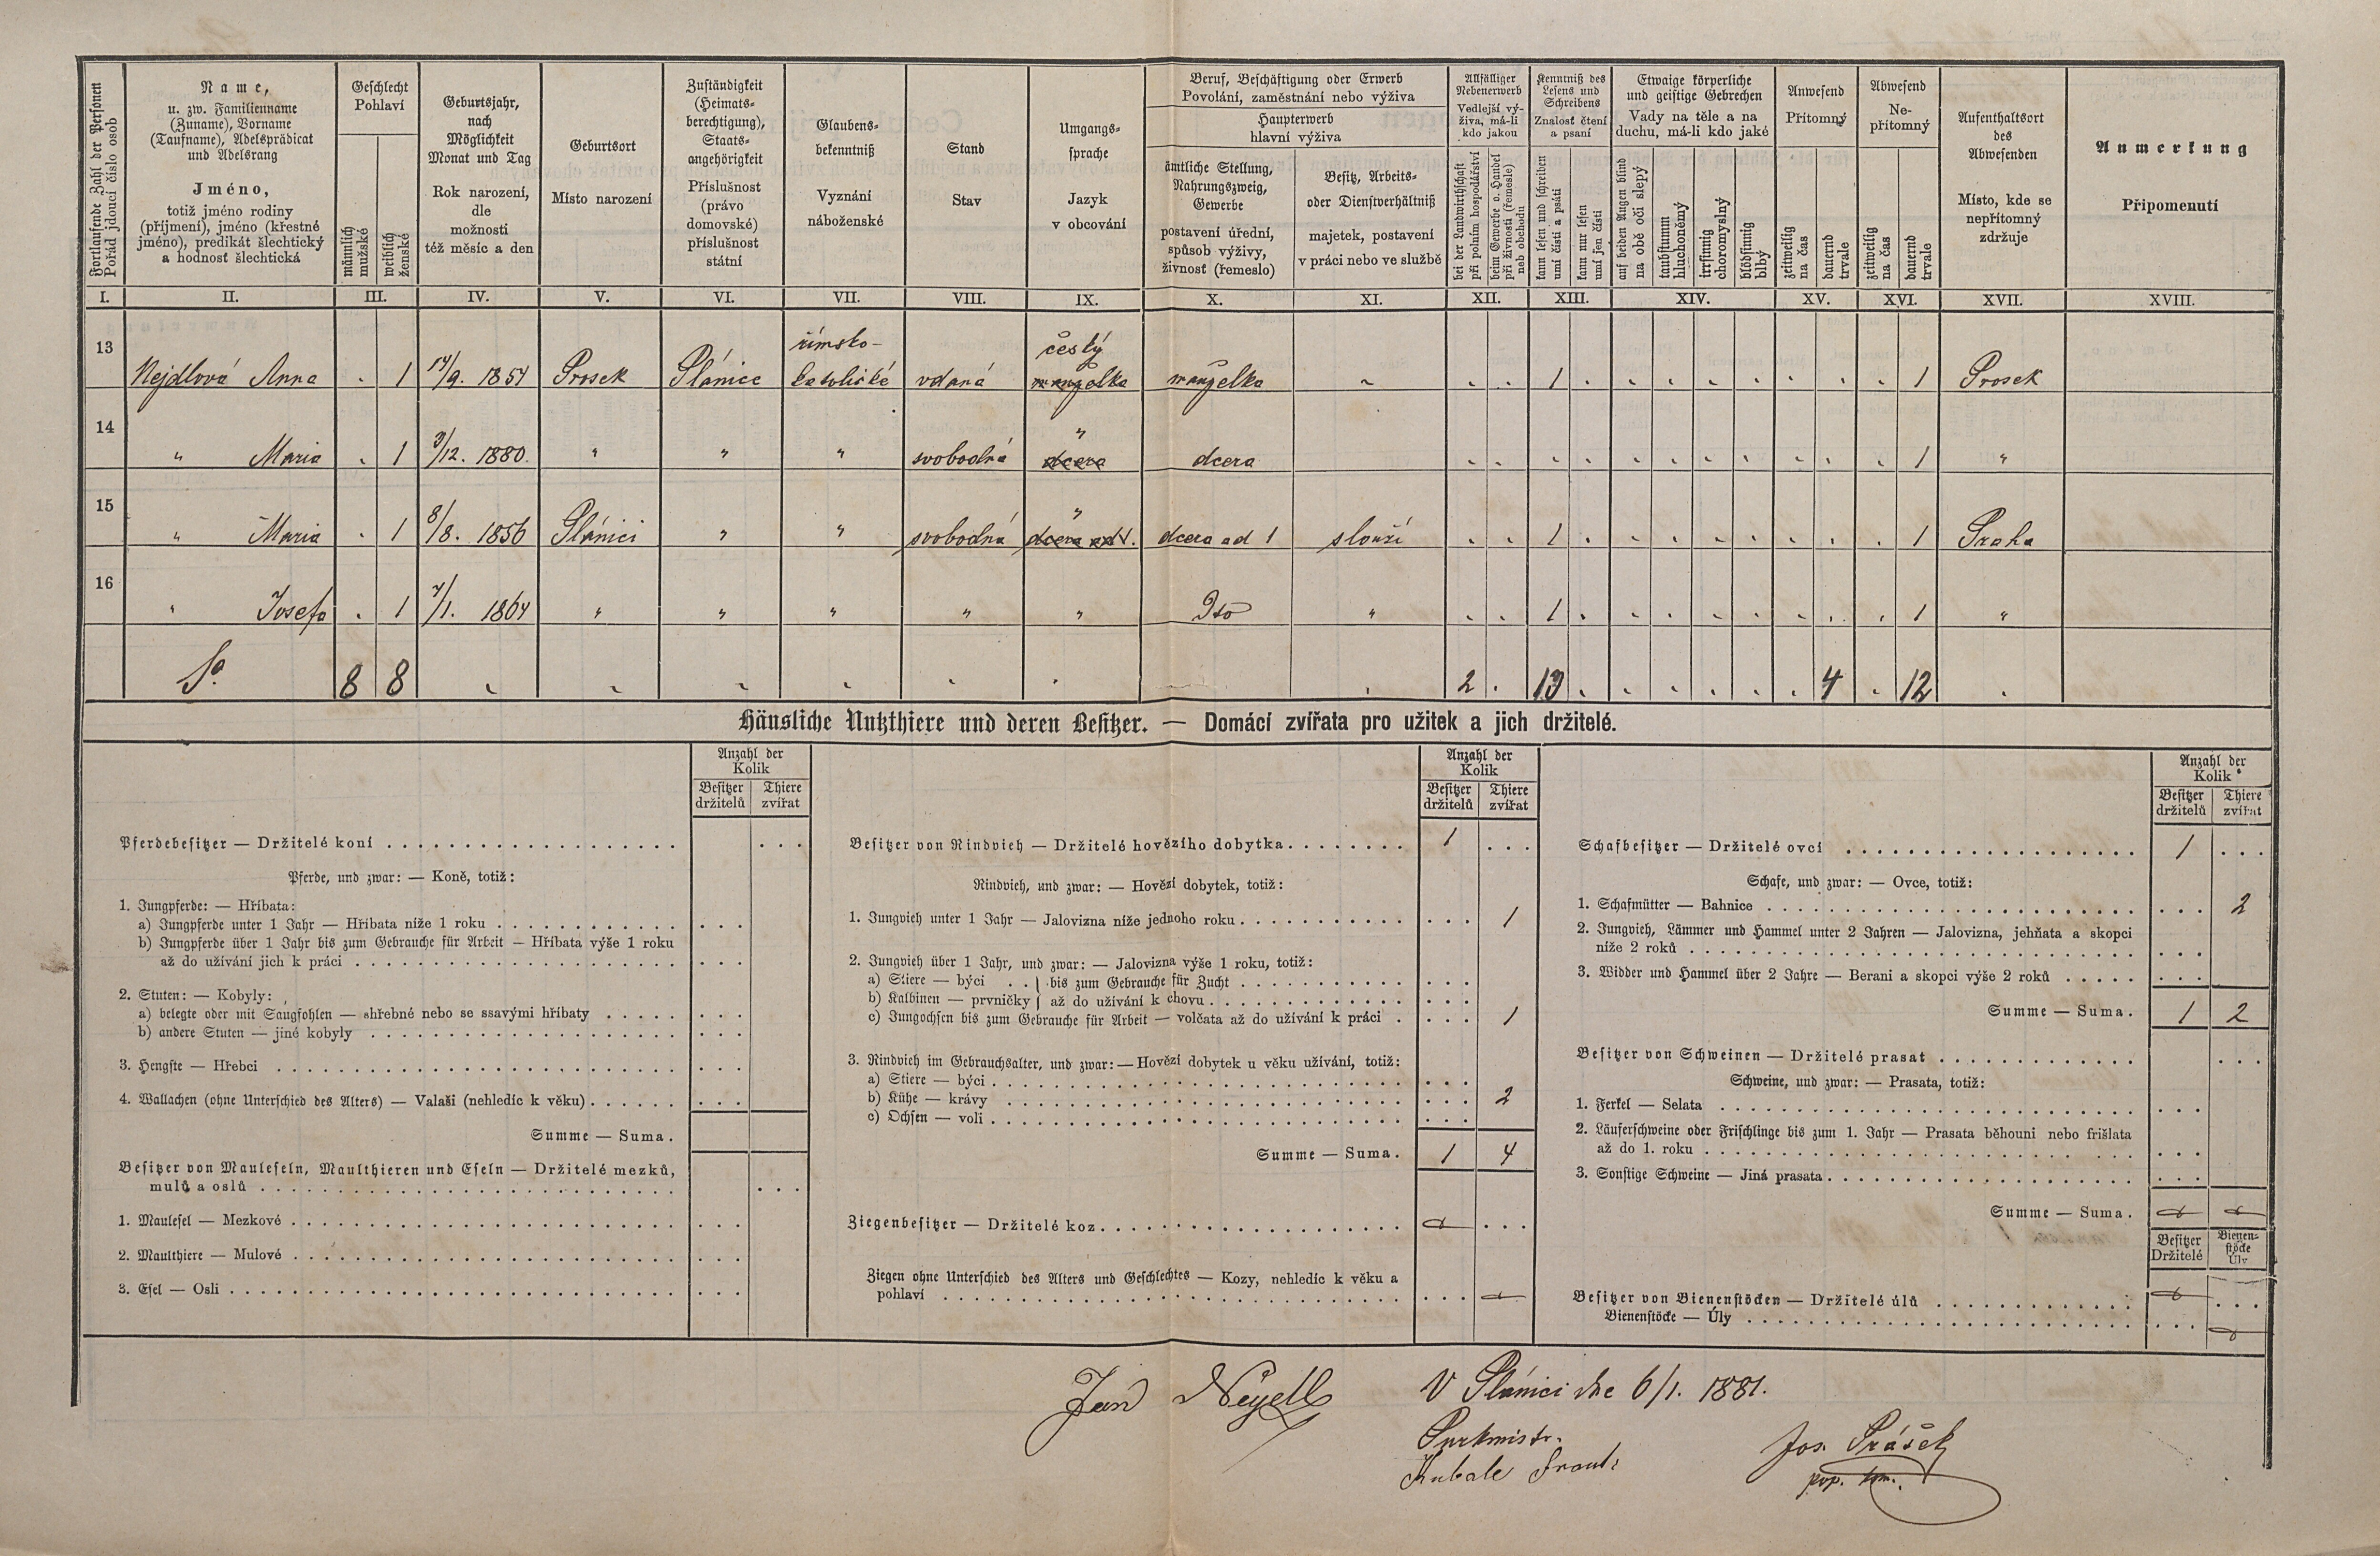 Fortlaufende Zahl der Personen
Pořád jdoucí číslo osob
Name,
u. zw. Familienname
(Zuname), Vorname
(Taufname), Adelsprädicat
und Adelsrang
Jméno,
totiž jméno rodiny
(příjmení), jméno (křestné
jméno), predikát šlechtický
a hodnosť šlechtická
Geschlecht
Pohlaví
männlich
mužské
weiblich
ženské
Geburtsjahr,
nach
Möglichkeit
Monat und Tag
Rok narození,
dle
možnosti
též měsíc a den
Geburtsort
Místo narození
Zuständigkeit
(Heimats-
berechtigung),
Staats-
angehörigkeit
Příslušnost
(právo
domovské)
příslušnost
státní
Glaubens-
bekenntniß
Vyznání
náboženské
Stand
Stav
Umgangs-
sprache
Jazyk
v obcování
Beruf, Beschäftigung oder Erwerb
Povolání, zaměstnání nebo výživa
Haupterwerb
hlavní výživa
ämtliche Stellung,
Nahrungszweig,
Gewerbe
postavení úřední,
spůsob výživy,
živnosť (řemeslo)
Besitz, Arbeits-
oder Dienstverhältniß
majetek, postavení
v práci nebo ve službě
Allfälliger
Nebenerwerb
Vedlejší vý-
živa, má-li
kdo jakou
bei der Landwirthschaft
při polním hospodářství
beim Gewerbe o. Handel
při živnosti (řemesle)
neb obchodu
Kenntniß des
Lesens und
Schreibens
Znalosť čtení
a psaní
kann lesen und schreiben
umí čísti a psáti
kann nur lesen
umí jen čísti
Etwaige körperliche
und geistige Gebrechen
Vady na těle a na
duchu, má-li kdo jaké
auf beiden Augen blind
na obě oči slepý
taubstumm
hluchoněmý
irrsinnig
choromyslný
blödsinnig
blbý
Anwesend
Přítomný
zeitweilig
na čas
dauernd
trvale
Abwesend
Ne-
přítomný
zeitweilig
na čas
dauernd
trvale
Aufenthaltsort
des
Abwesenden
Místo, kde se
nepřítomný
zdržuje
Anmerkung
Připomenutí
I. II. III. IV. V. VI. VII. VIII. IX. X. XI. XII. XIII. XIV. XV. XVI. XVII. XVIII.
13 římsko- český
Nejdlová Anna . 1 14/9. 1854 Prosek Plánice katolické vdaná manželka manželka 1 1 Prosek
14 "
" Maria . 1 3/12. 1880. " " " svobodná dcera dcera 1 "
15 "
" Maria . 1 8/8. 1856 Plánici " " svobodná dcera ad 1. dcera ad 1 slouží 1 1 Praha
16
" Josefa . 1 7/1. 1864 " " " " " Dto " 1 1 "
Sa. 8 8 2 . 13 4 12
Häusliche Nutzthiere und deren Besitzer. — Domácí zvířata pro užitek a jich držitelé.
Anzahl der
Kolik
Besitzer Thiere
držitelů zvířat
Pferdebesitzer — Držitelé koní
Pferde, und zwar: — Koně, totiž:
1. Jungpferde: — Hříbata:
a) Jungpferde unter 1 Jahr — Hříbata níže 1 roku
b) Jungpferde über 1 Jahr bis zum Gebrauche für Arbeit — Hříbata výše 1 roku
až do užívání jich k práci
2. Stuten: — Kobyly:
a) belegte oder mit Saugfohlen — shřebné nebo se ssavými hříbaty
b) andere Stuten — jiné kobyly
3. Hengste — Hřebci
4. Wallachen (ohne Unterschied des Alters) — Valaši (nehledíc k věku)
Summe — Suma.
Besitzer von Mauleseln, Maulthieren und Eseln — Držitelé mezků,
mulů a oslů
1. Maulesel — Mezkové
2. Maulthiere — Mulové
3. Esel — Osli
Anzahl der
Kolik
Besitzer Thiere
držitelů zvířat
Besitzer von Rindvieh — Držitelé hovězího dobytka 1
Rindvieh, und zwar: — Hovězí dobytek, totiž:
1. Jungvieh unter 1 Jahr — Jalovizna níže jednoho roku 1
2. Jungvieh über 1 Jahr, und zwar: — Jalovizna výše 1 roku, totiž:
a) Stiere — býci . . } bis zum Gebrauche für Zucht
b) Kalbinen — prvničky } až do užívání k chovu
c) Jungochsen bis zum Gebrauche für Arbeit — volčata až do užívání k práci 1
3. Rindvieh im Gebrauchsalter, und zwar: — Hovězí dobytek u věku užívání, totiž:
a) Stiere — býci
b) Kühe — krávy 2
c) Ochsen — voli
Summe — Suma. 1 4
Ziegenbesitzer — Držitelé koz
Ziegen ohne Unterschied des Alters und Geschlechtes — Kozy, nehledíc k věku a
pohlaví
Anzahl der
Kolik
Besitzer Thiere
držitelů zvířat
Schafbesitzer — Držitelé ovcí 1
Schafe, und zwar: — Ovce, totiž:
1. Schafmütter — Bahnice 2
2. Jungvieh, Lämmer und Hammel unter 2 Jahren — Jalovizna, jehňata a skopci
níže 2 roků
3. Widder und Hammel über 2 Jahre — Berani a skopci výše 2 roků
Summe — Suma. 1 2
Besitzer von Schweinen — Držitelé prasat
Schweine, und zwar: — Prasata, totiž:
1. Ferkel — Selata
2. Läuferschweine oder Frischlinge bis zum 1. Jahr — Prasata běhouni nebo frišlata
až do 1. roku
3. Sonstige Schweine — Jiná prasata
Summe — Suma.
Besitzer Bienen-
Držitelé stöcke
Úly
Besitzer von Bienenstöcken — Držitelé úlů
Bienenstöcke — Úly
Jan V Plánici dne 6/1. 1881.
Purkmistr.
Jos. Prášek